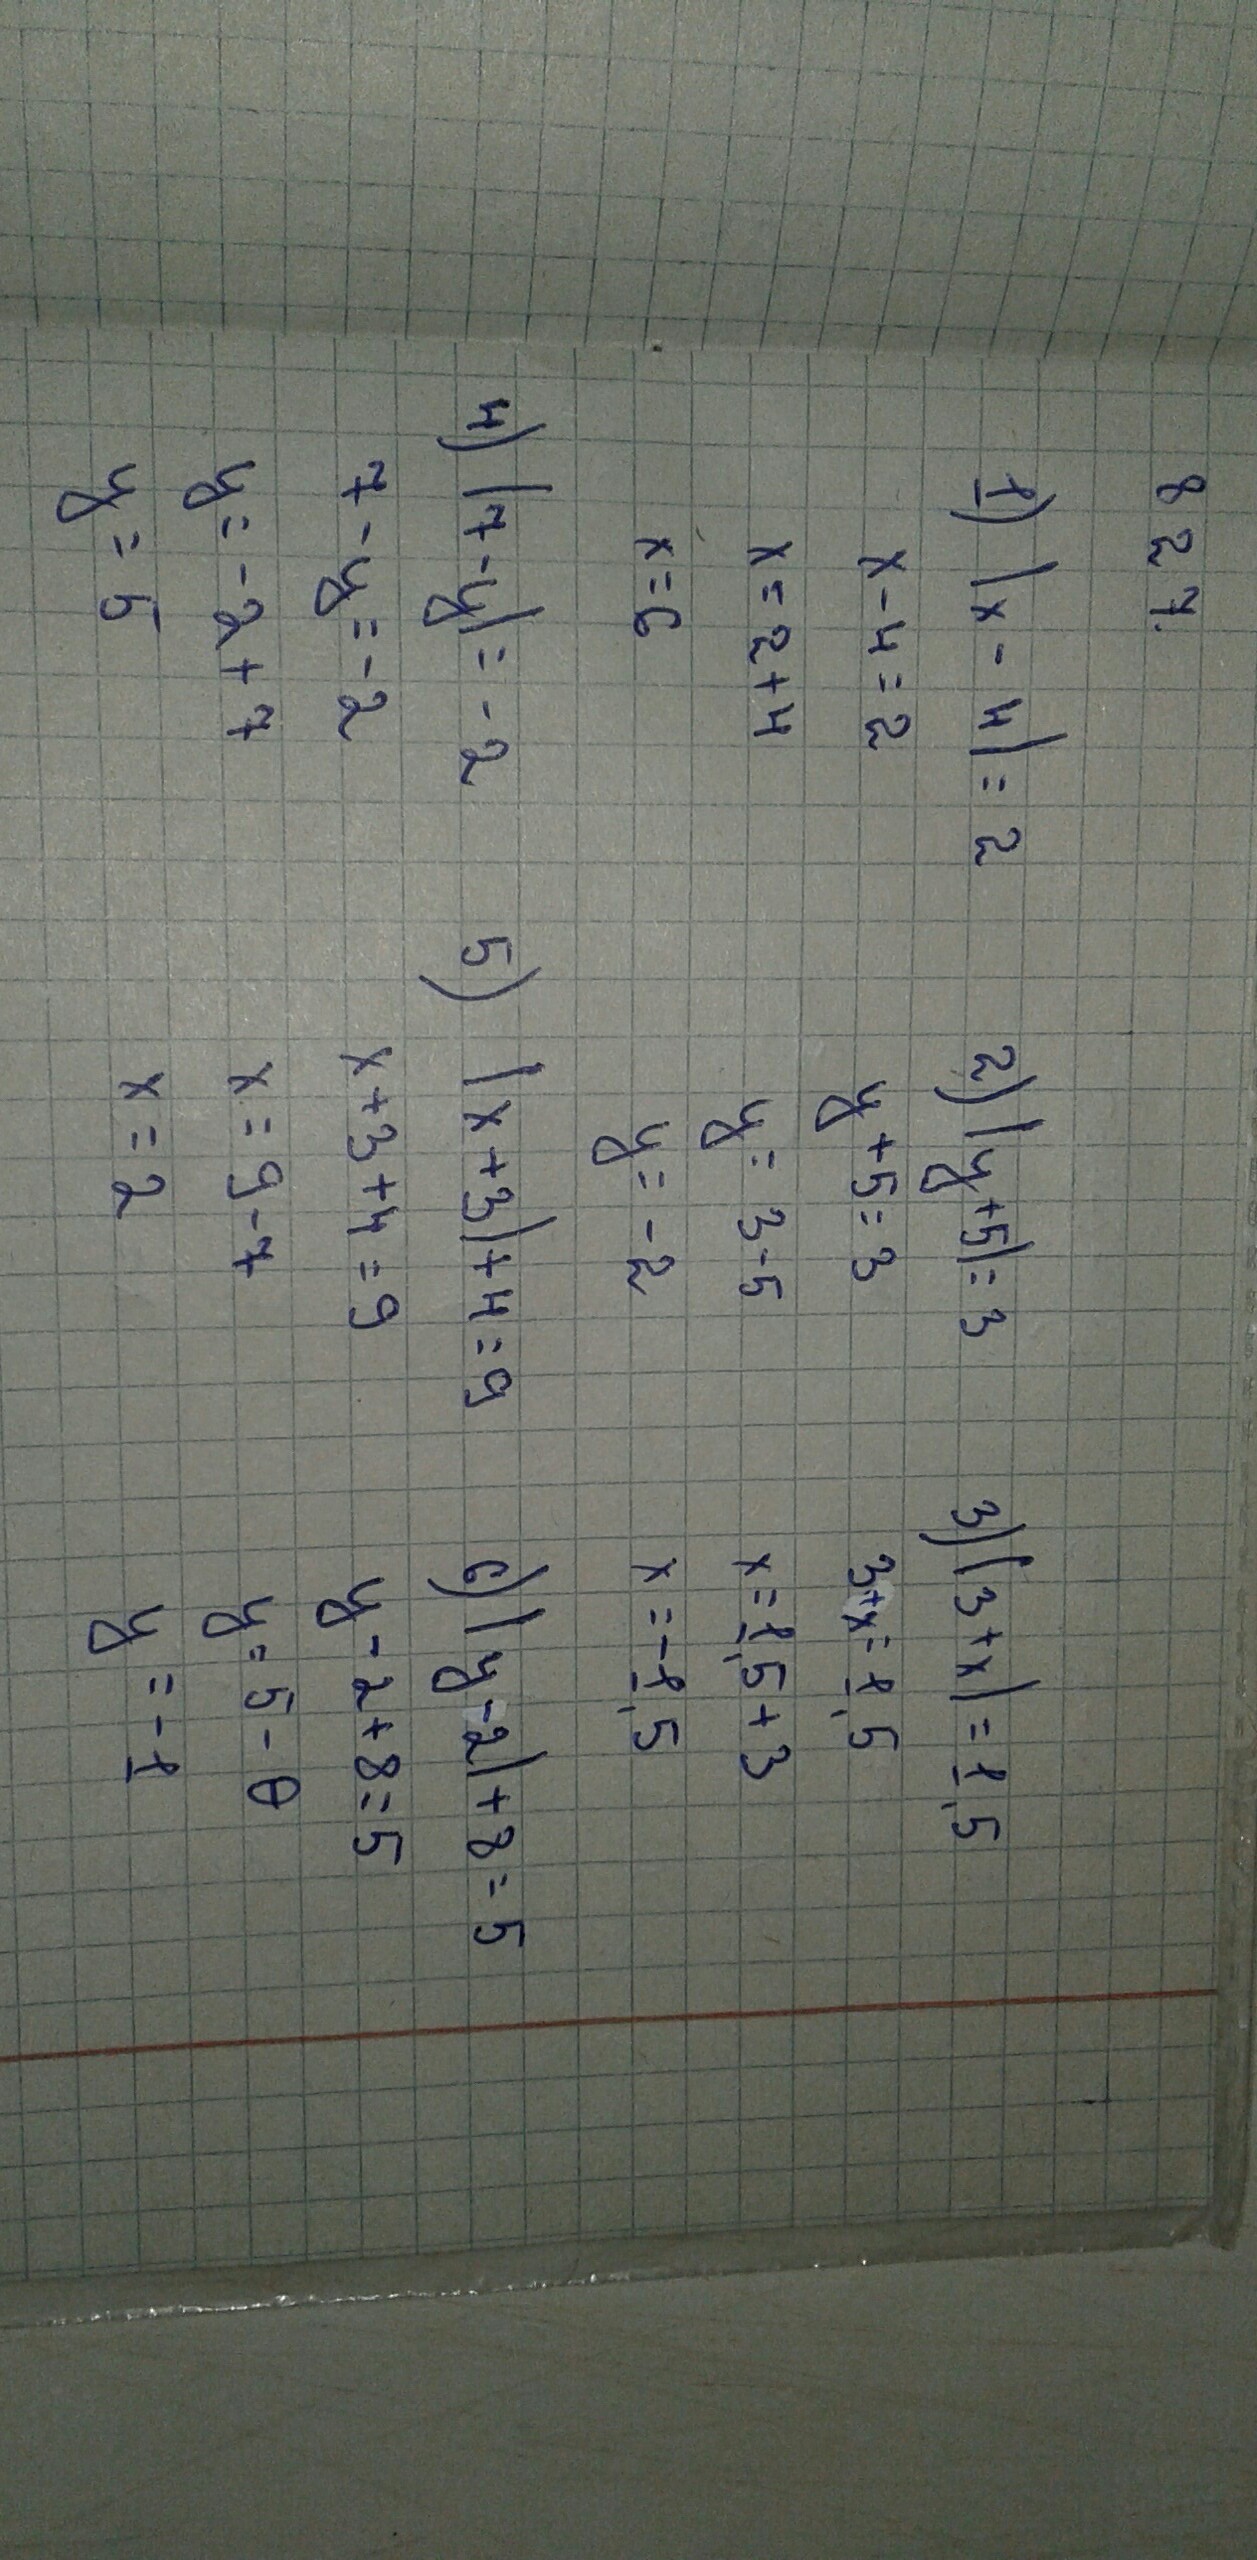 827.
1) |x-4|=2
x-4=2
x=2+4
x=6
2) |y+5|=3
y+5=3
y=3-5
y=-2
3) |3+x|=1,5
3+x=1,5
x=1,5+3
x=-1,5
4) |7-y|=-2
7-y=-2
y=-2+7
y=5
5) |x+3|+4=9
x+3+4=9
x=9-7
x=2
6) |y-2|+8=5
y-2+8=5
y=5-6
y=-1